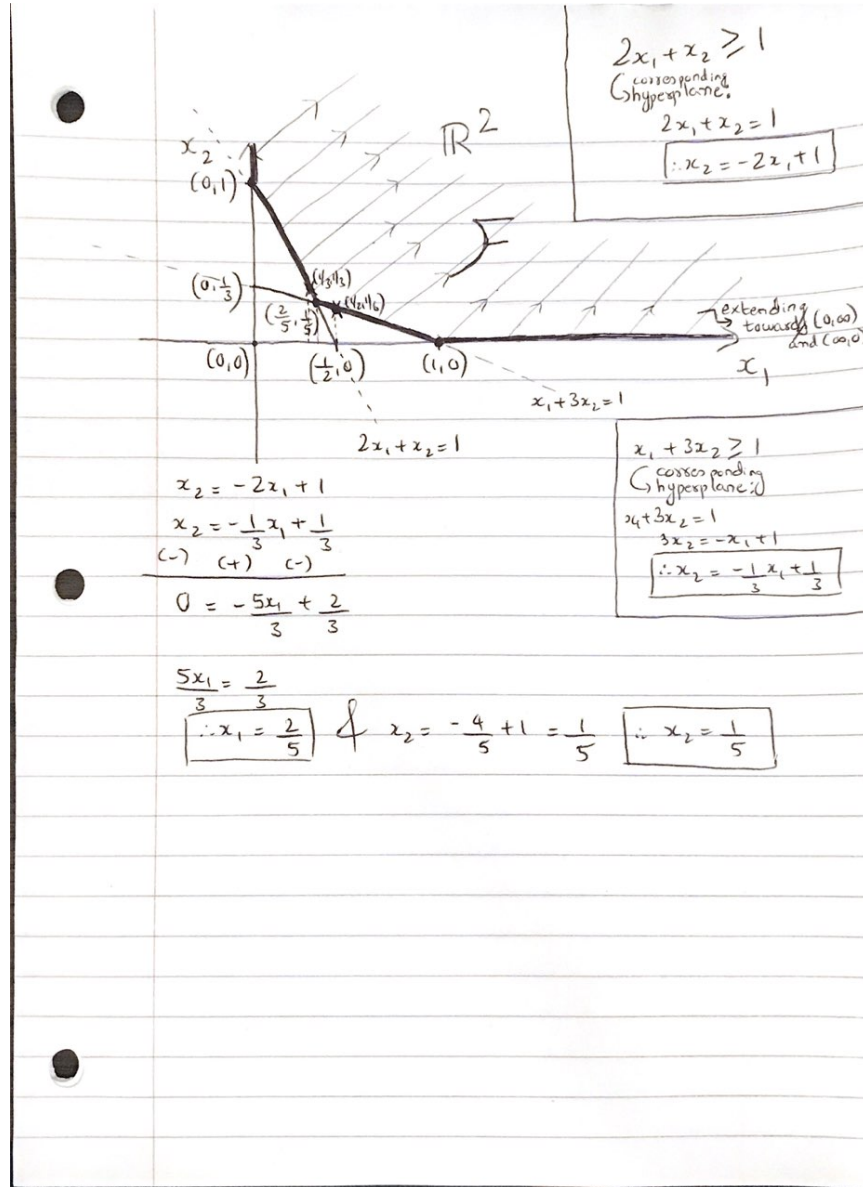 2x₁ + x₂ ≥ 1
corresponding
hyperplane:
2x₁ + x₂ = 1
∴ x₂ = -2x₁ + 1
ℝ²
x₂
(0,1)
(0, 1/3)
(1/3, 1/3)
(2/5, 1/5)
(1/2, 1/6)
(0,0)
(1/2, 0)
(1,0)
extending
towards (0,∞)
and (∞,0)
x₁
x₁ + 3x₂ = 1
2x₁ + x₂ = 1
x₁ + 3x₂ ≥ 1
corresponding
hyperplane:
x₁ + 3x₂ = 1
3x₂ = -x₁ + 1
∴ x₂ = -1/3 x₁ + 1/3
x₂ = -2x₁ + 1
x₂ = -1/3 x₁ + 1/3
(-) (+) (-)
0 = -5x₁/3 + 2/3
5x₁/3 = 2/3
∴ x₁ = 2/5 & x₂ = -4/5 + 1 = 1/5 ∴ x₂ = 1/5